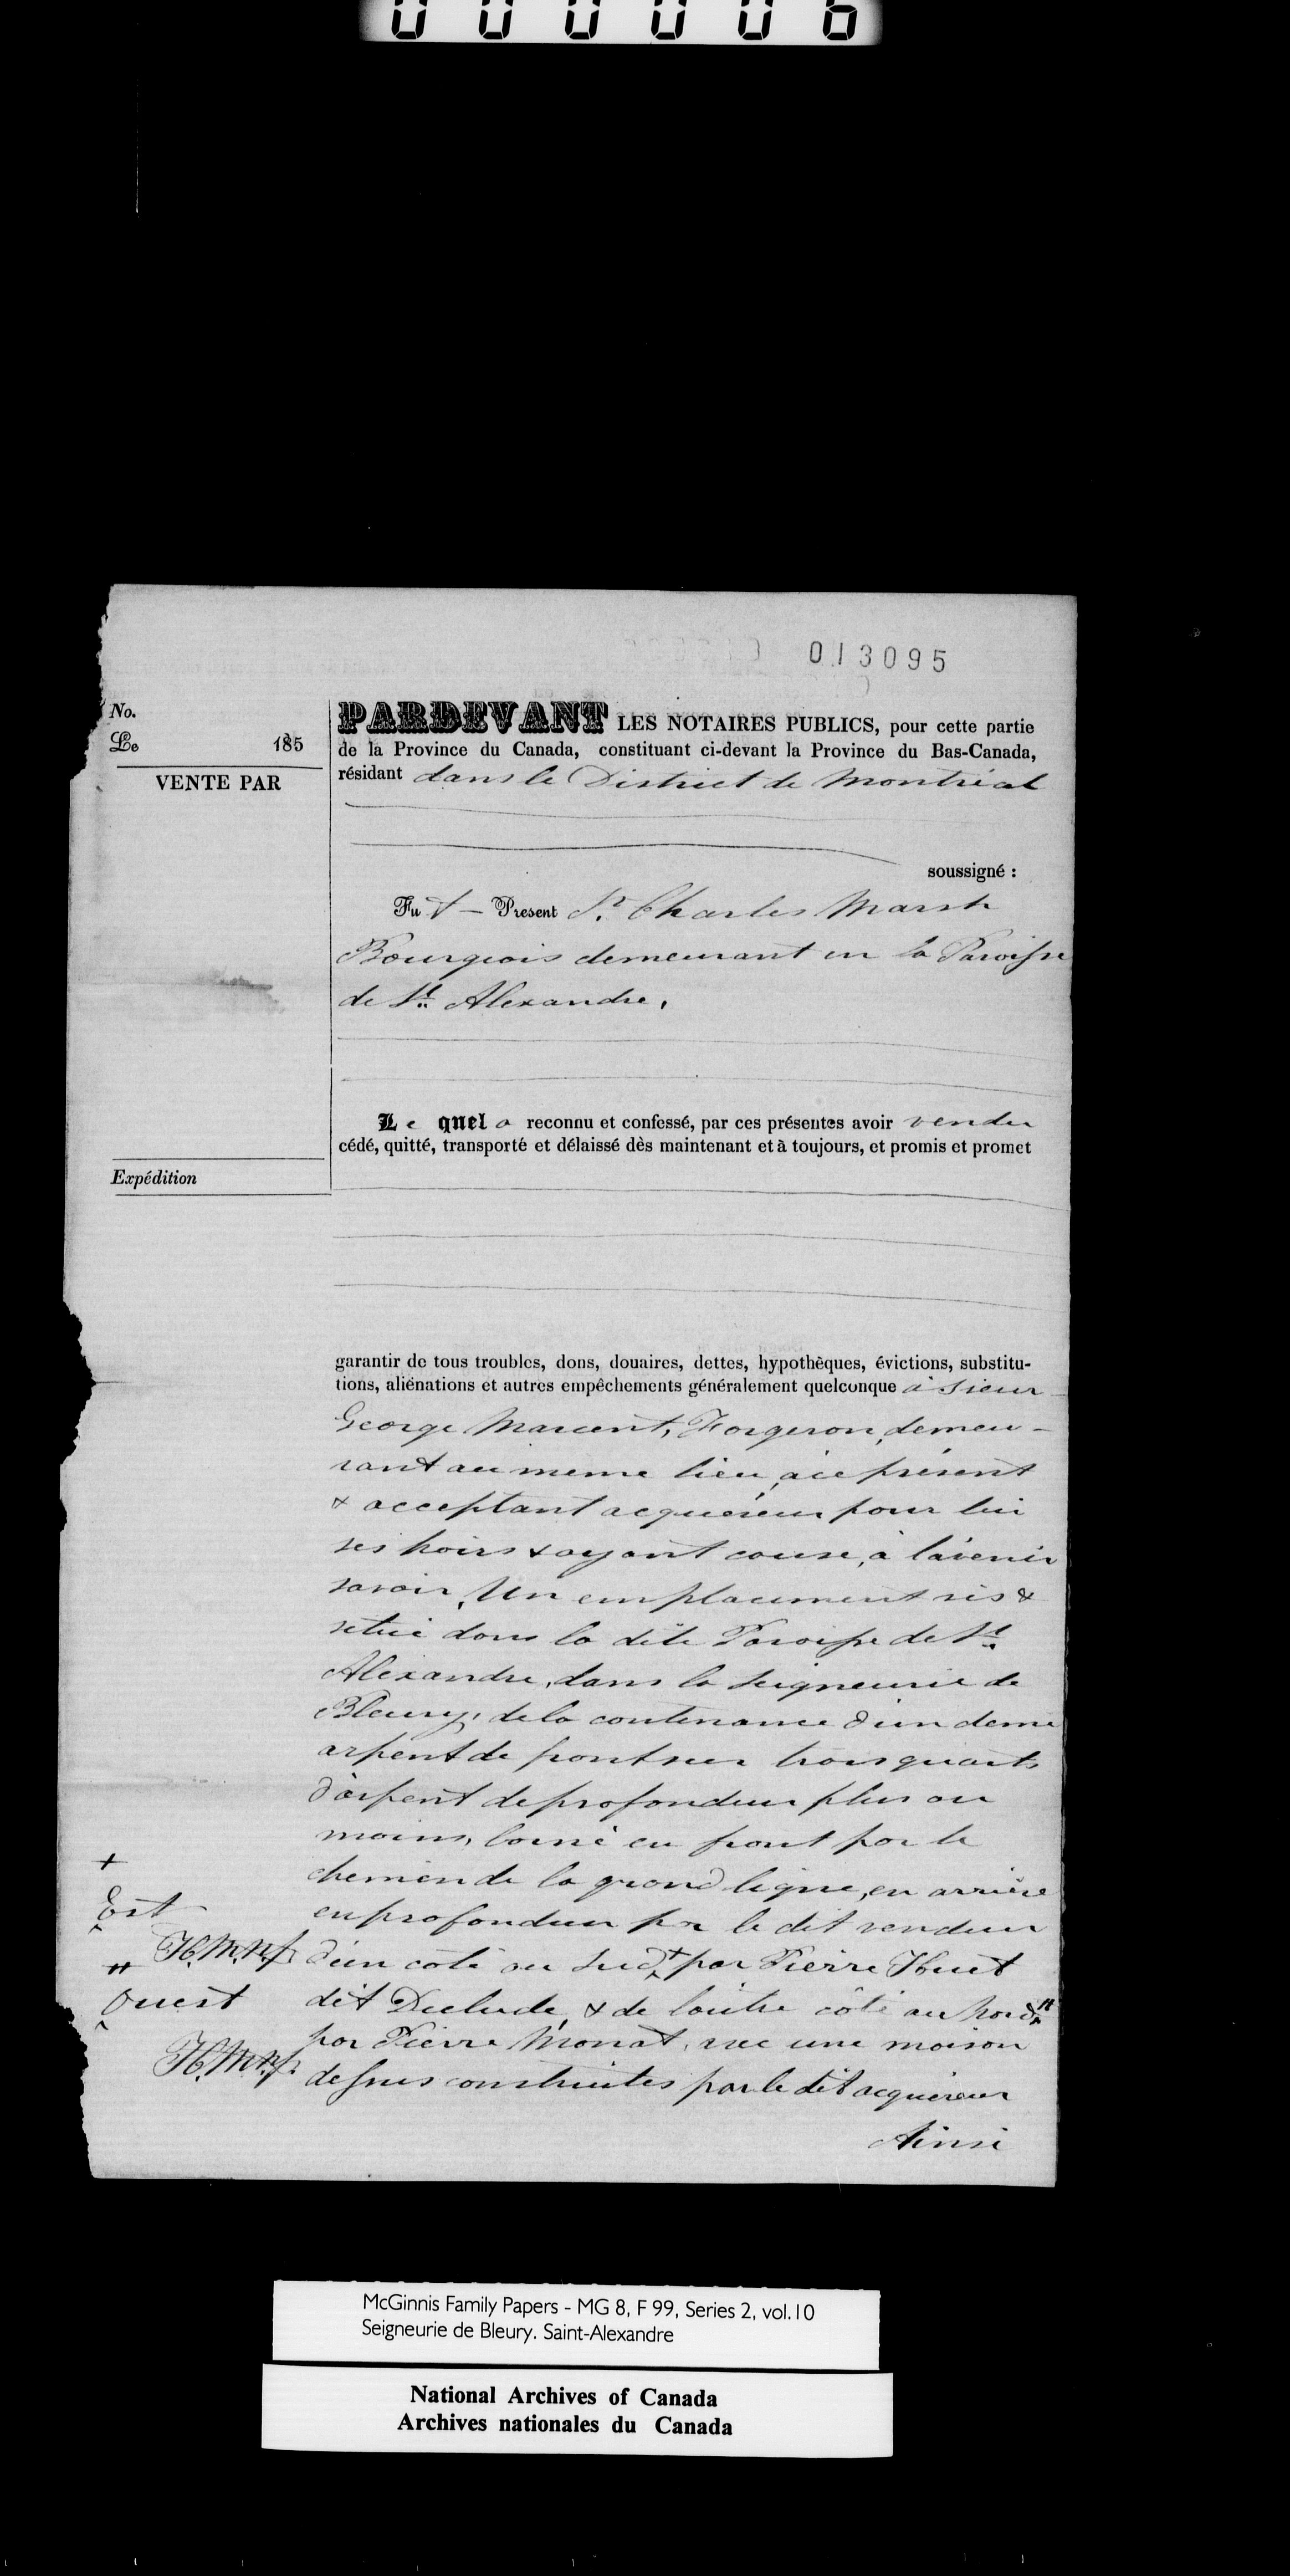 000006
013095
No.
Le 185
VENTE PAR
Expédition
PARDEVANT LES NOTAIRES PUBLICS, pour cette partie
de la Province du Canada, constituant ci-devant la Province du Bas-Canada,
résidant dans le District de Montréal
soussigné :
Fut — Present Sr. Charles Marsh
Bourgeois demeurant en la Paroisse
de St. Alexandre,
Le quel a reconnu et confessé, par ces présentes avoir vendu
cédé, quitté, transporté et délaissé dès maintenant et à toujours, et promis et promet
garantir de tous troubles, dons, douaires, dettes, hypothèques, évictions, substitu-
tions, aliénations et autres empêchements généralement quelconque à Sieur
George Marcent, Forgeron, demeu-
rant au meme lieu, à ce présent
& acceptant acquéreur pour lui
ses hoirs & ayant cause, à l'avenir
savoir, Un emplacement sis &
situé dans la dite Paroisse de St.
Alexandre, dans la Seigneurie de
Bleury, de la contenance d'un demi
arpent de front sur trois quarts
d'arpent de profondeur plus ou
moins, borné en front par le
chemin de la grand ligne, en arrière
en profondeur par le dit vendeur
d'un coté au Sud + par Pierre Huet
dit Duclude, & de l'autre côté au nord "
par Pierre Monat, avec une maison
dessus construites par le dit acquéreur
Ainsi
+
Est
H.M.N.P.
"
Ouest
H.M.N.P.
McGinnis Family Papers - MG 8, F 99, Series 2, vol.10
Seigneurie de Bleury. Saint-Alexandre
National Archives of Canada
Archives nationales du Canada